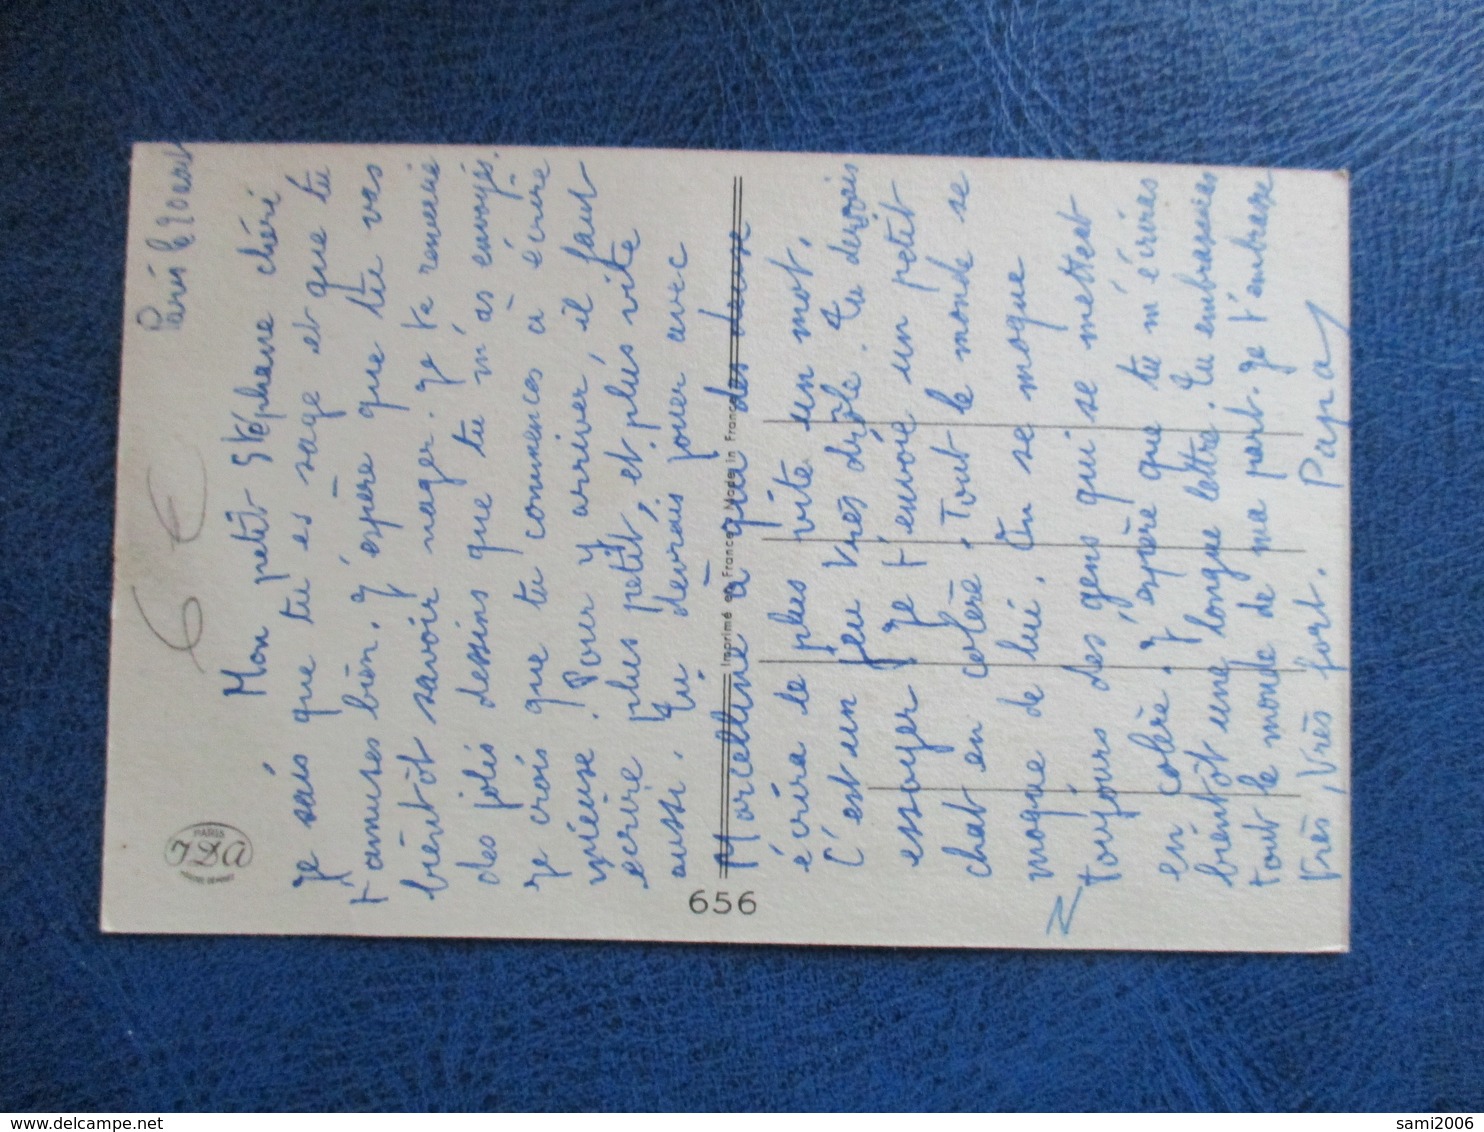 Paris le 20 août
6 €
Mon petit Stéphane chéri
Je sais que tu es sage et que tu
t'amuses bien. J'espère que tu vas
bientôt savoir nager. Je te remercie
des jolis dessins que tu m'as envoyés.
Je crois que tu commences à écrire
mieux. Pour y arriver, il faut
écrire plus petit, et plus vite
aussi. Tu devrais jouer avec
Marcelline à qui des deux
écrira le plus vite un mot.
C'est un jeu très drôle. Tu devrais
essayer. Je t'envoie un petit
chat en colère. Tout le monde se
moque de lui. On se moque
toujours des gens qui se mettent
en colère. J'espère que tu m'écriras
bientôt une longue lettre. Tu embrasseras
tout le monde de ma part. Je t'embrasse
très, très fort. Papa
PARIS
JDA
656
Imprimé en France, Made in France
delcampe.net
sami2006